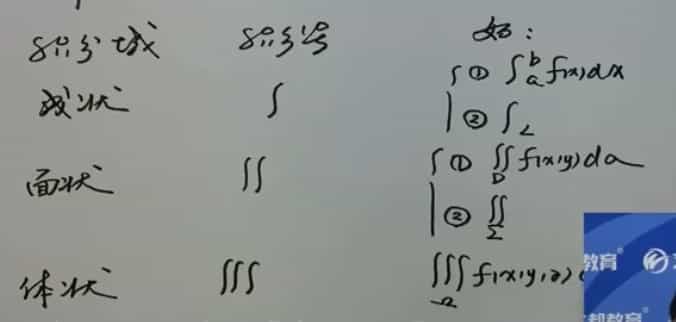 积分域 积分号 如:
线状 ∫ ① ∫_a^b f(x)dx
② ∫_L
面状 ∬ ① ∬_D f(x,y)dσ
② ∬_Σ
体状 ∭ ∭_Ω f(x,y,z)
教育®
都教育®